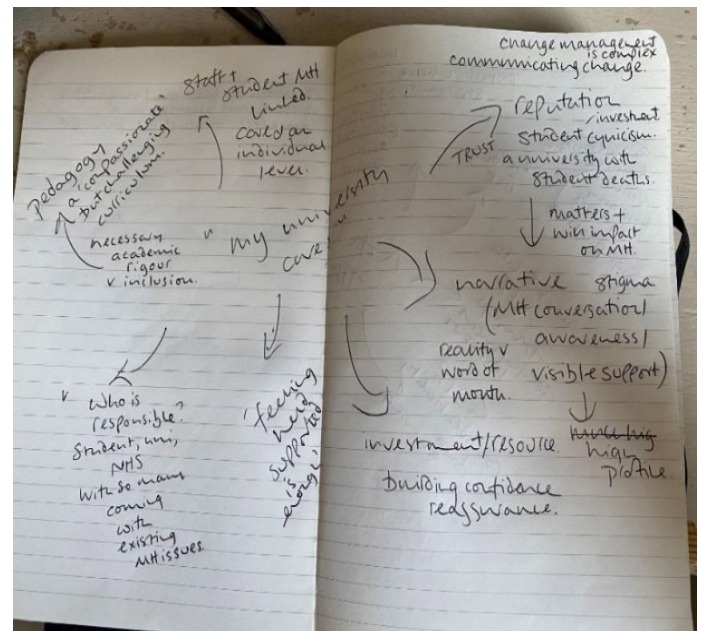 staff +
student MH
linked.
cared on
individual
level.
pedagogy
a 'compassionate'
but challenging
curriculum.
necessary
academic
rigour
v inclusion.
"my university
"
Who is
responsible?
Student, uni,
NHS
With so many
coming
with
existing
MH issues
'feeling
held
supported
is
enough'
change management
is complex
communicating change.
reputation
/investment
TRUST
student cynicism.
a university with
student deaths.
matters +
will impact
on MH.
narrative stigma
(MH conversation/
awareness/
reality v
word of
mouth.
visible support)
high
profile.
investment/resource.
building confidence
reassurance.